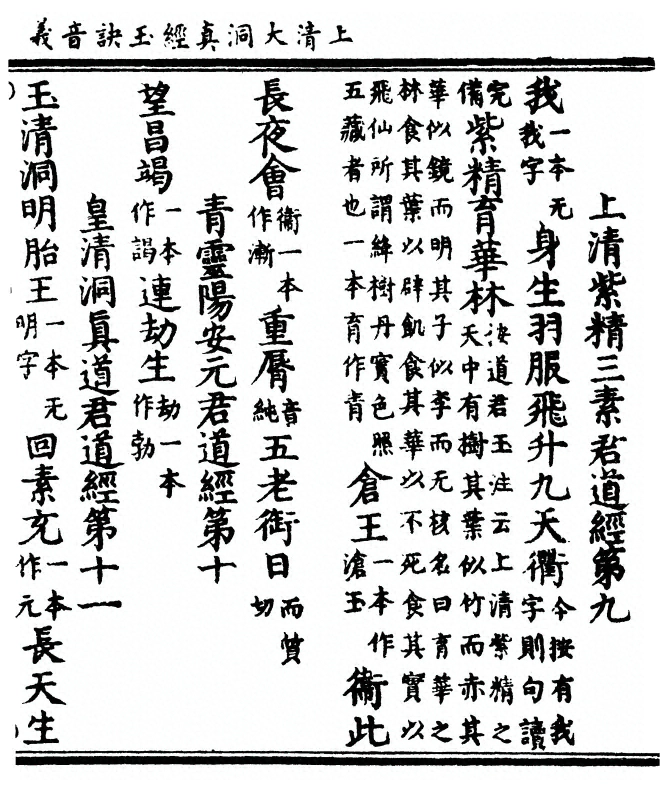 上清大洞真經玉訣音義
上清紫精三素君道經第九
我一本无我字身生羽服飛升九天衢今按有我字則句讀
完備紫精育華林按道君玉注云上清紫精之天中有樹其葉似竹而赤其
華似鏡而明其子似李而无核名曰育華之林食其葉以辟飢食其華以不死食其實以
飛仙所謂絳樹丹實色照五藏者也一本育作青倉王一本作滄玉衞此
長夜會衞一本作漸重脣音純五老衘日而質切
青靈陽安元君道經第十
望昌竭一本作謁連劫生劫一本作勃
皇清洞眞道君道經第十一
玉清洞明胎王一本无明字回素充一本作元長天生